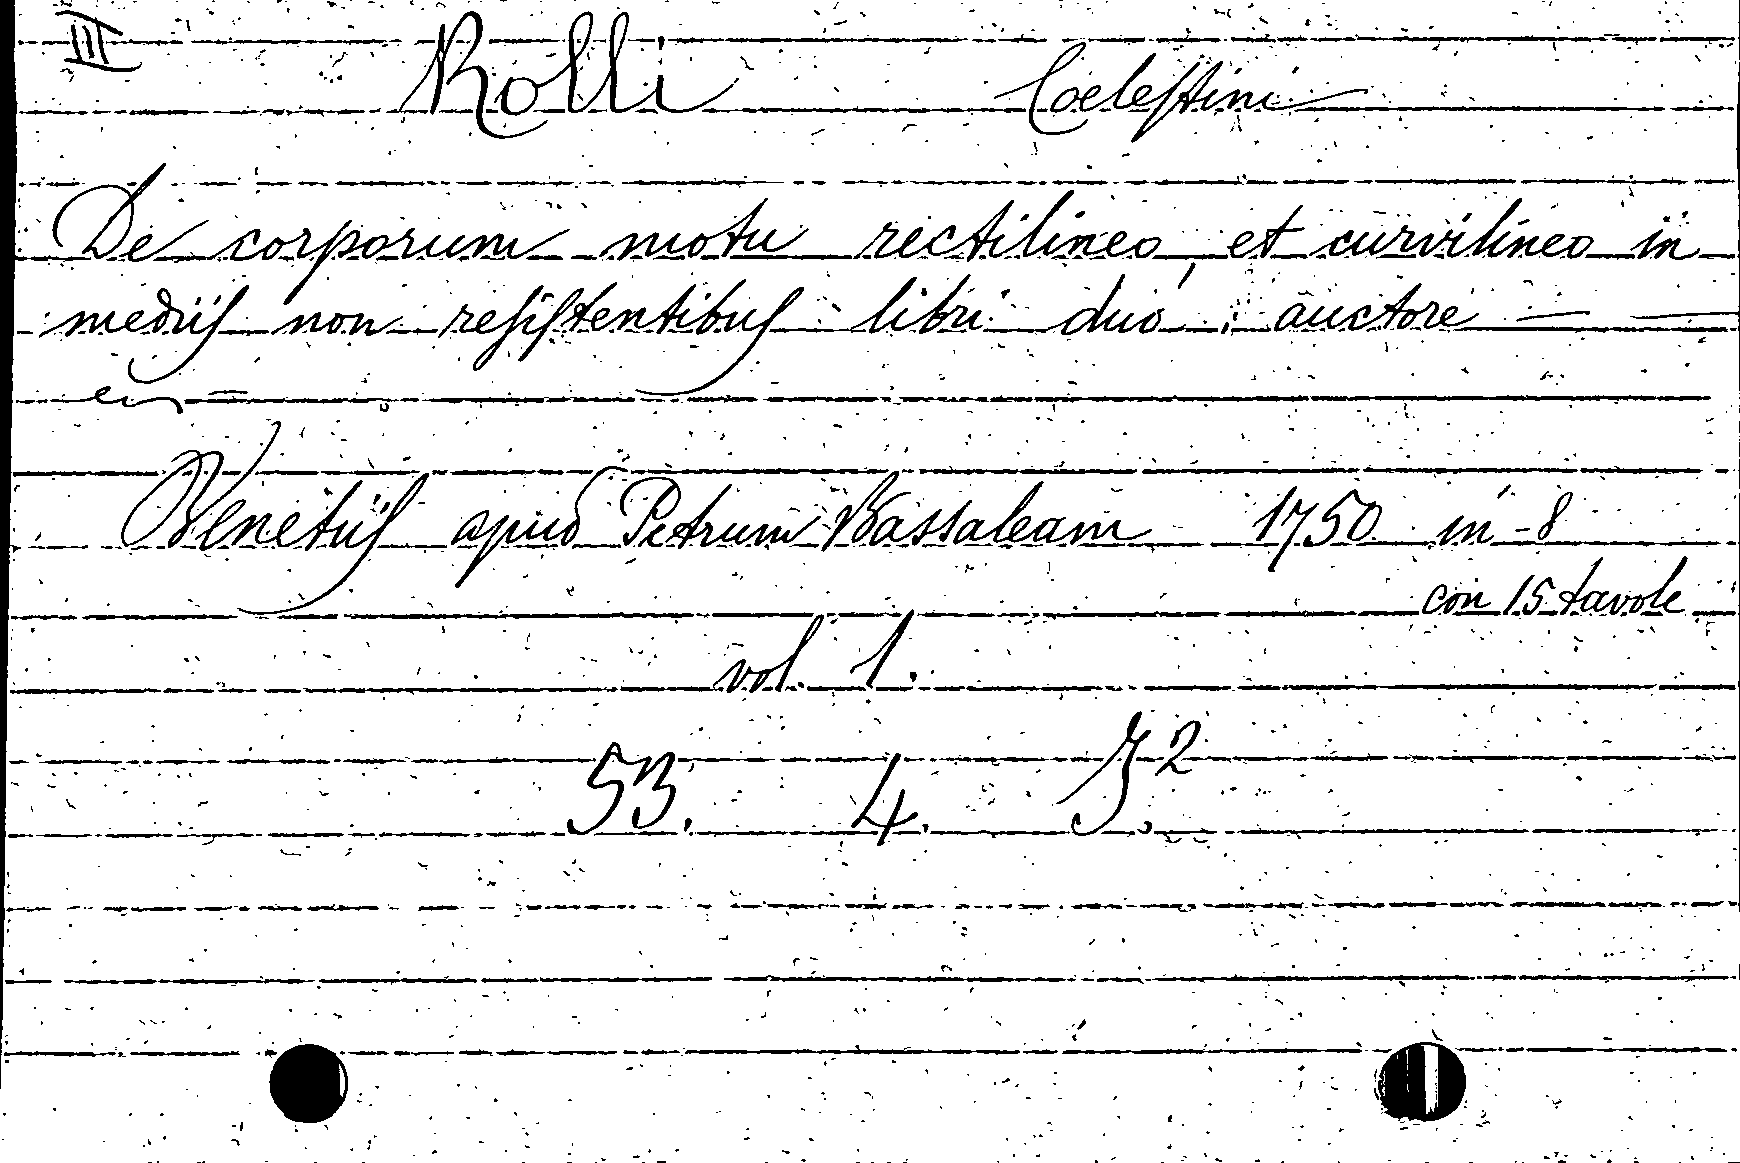 III Rolli Coelestini
De corporum motu rectilineo, et curvilineo in
mediis non resistentibus libri duo: auctore — —
Venetiis apud Petrum Bassaleam 1750 in-8
con 15 tavole
vol. 1.
53. 4. J.2